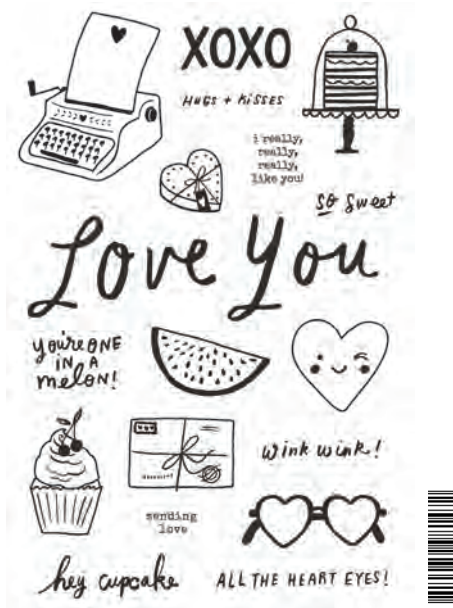 XOXO
HUGS + KISSES
i really,
really,
really,
like you!
so sweet
Love You
you're one
in a
melon!
wink wink!
sending
love
hey cupcake
ALL THE HEART EYES!